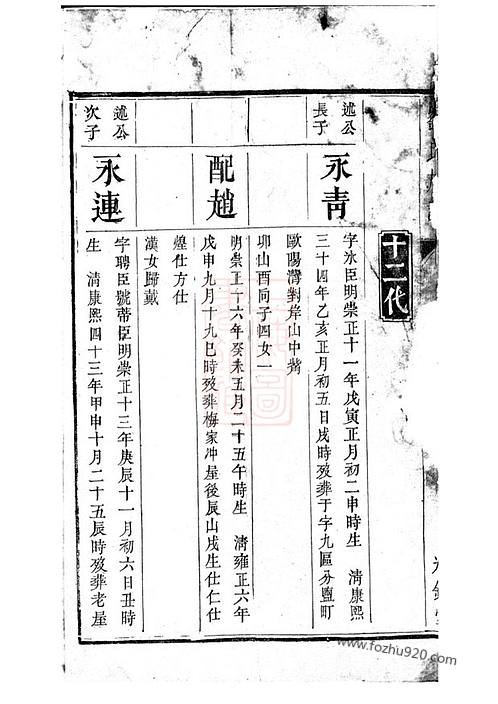 十二代
述公
長子
永青
字氷臣明崇正十一年戊寅正月初二申時生 清康熙
三十四年乙亥正月初五日戌時歿葬于字九區分鹽町
歐陽灣對岸山中嘴
卯山酉向子四女一
配趙
明崇正十六年癸未五月二十五午時生 清雍正六年
戊申九月十九巳時歿葬梅家冲屋後辰山戌生仕仁仕
煌仕方仕
漢女歸戴
述公
次子
永連
字聘臣號蒂臣明崇正十三年庚辰十一月初六日丑時
生 清康熙四十三年甲申十月二十五辰時歿葬老屋
www.fozhu920.com